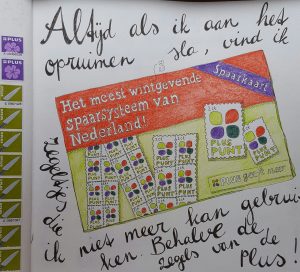 Altijd als ik aan het
opruimen sla, vind ik
Spaarkaart
Het meest winstgevende
spaarsysteem van
Nederland!
PLUS
PUNT
PLUS
PUNT
PLUS geeft meer
zegeltjes die
ik niet meer kan gebrui-
ken. Behalve de
zegels van de
Plus!
PLUS
PLUS